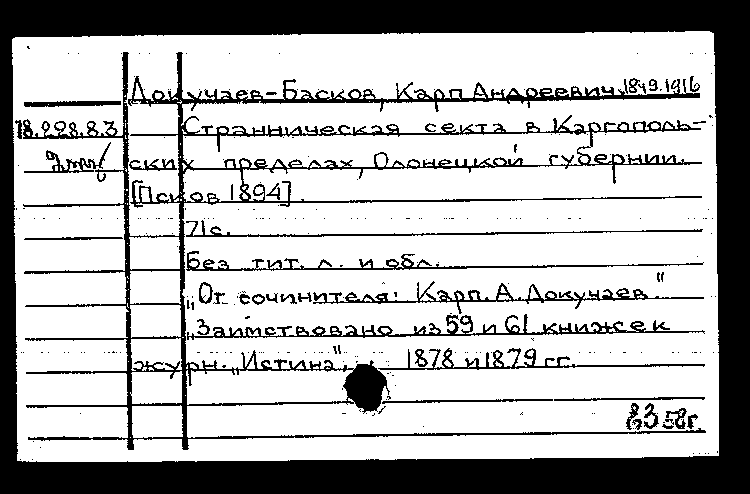 Докучаев-Басков, Карп Андреевич, 1849-1916
18.228.8.3 Странническая секта в Каргополь-
ских пределах, Олонецкой губернии.
[Псков 1894].
71с.
Без тит. л. и обл.
„От сочинителя: Карп. А. Докучаев."
„Заимствовано из 59 и 61 книжек
журн. „Истина", . 1878 и 1879 гг.
58г.